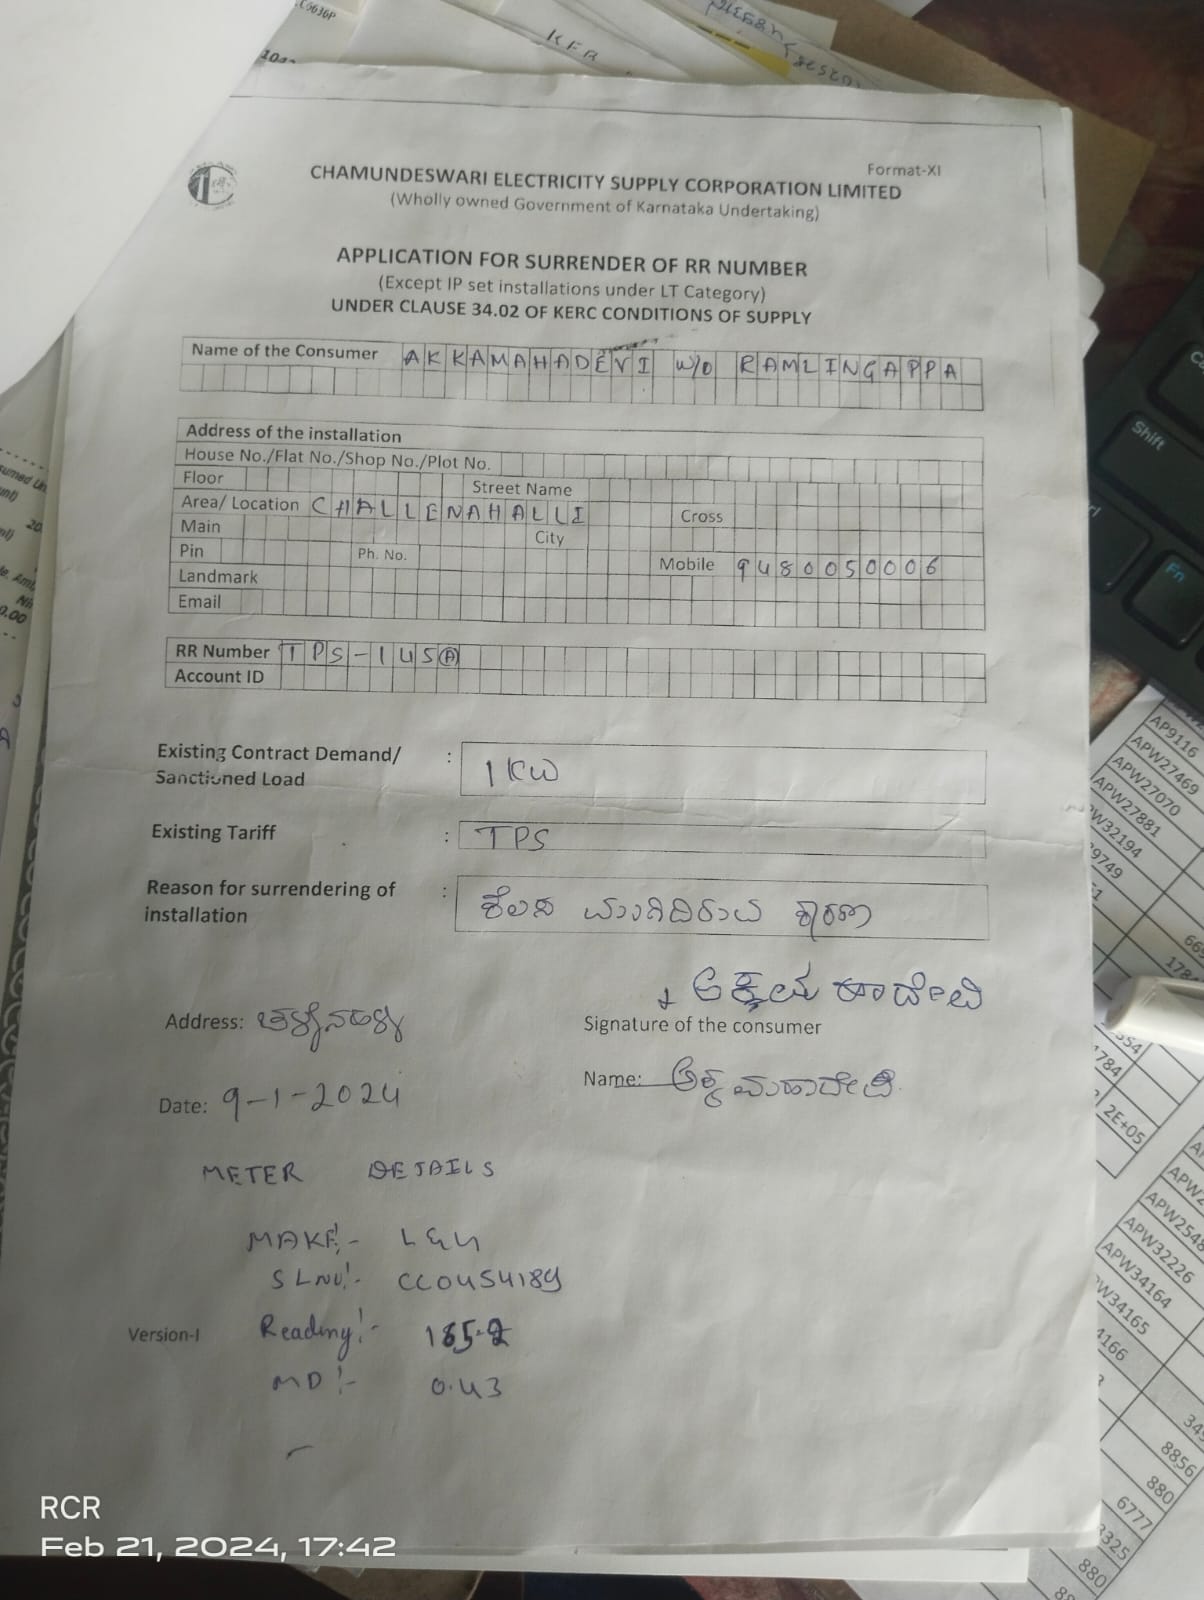 Format-XI
CHAMUNDESWARI ELECTRICITY SUPPLY CORPORATION LIMITED
(Wholly owned Government of Karnataka Undertaking)
APPLICATION FOR SURRENDER OF RR NUMBER
(Except IP set installations under LT Category)
UNDER CLAUSE 34.02 OF KERC CONDITIONS OF SUPPLY
Name of the Consumer AKKAMAHADEVI W/O RAMLINGAPPA
Address of the installation
House No./Flat No./Shop No./Plot No.
Floor Street Name
Area/ Location CHALLENAHALLI Cross
Main City
Pin Ph. No. Mobile 9480050006
Landmark
Email
RR Number TPS-145(A)
Account ID
Existing Contract Demand/ Sanctioned Load : 1 KW
Existing Tariff : TPS
Reason for surrendering of installation : ಕೆಲಸ ಮುಗಿದಿರುವ ಕಾರಣ
ಅಕ್ಕಮಹಾದೇವಿ
Address: ಚಳ್ಳೆನಹಳ್ಳಿ Signature of the consumer
Name: ಅಕ್ಕಮಹಾದೇವಿ
Date: 9-1-2024
METER DETAILS
MAKE:- L&G
SLNO:- CC0454189
Version-I Reading:- 165.2
MD:- 0.43
RCR
Feb 21, 2024, 17:42
KEB
AP9116
APW27469
APW27070
APW27881
2E+05
APW32226
APW34164
8856
880
6777
880
Shift
Fn